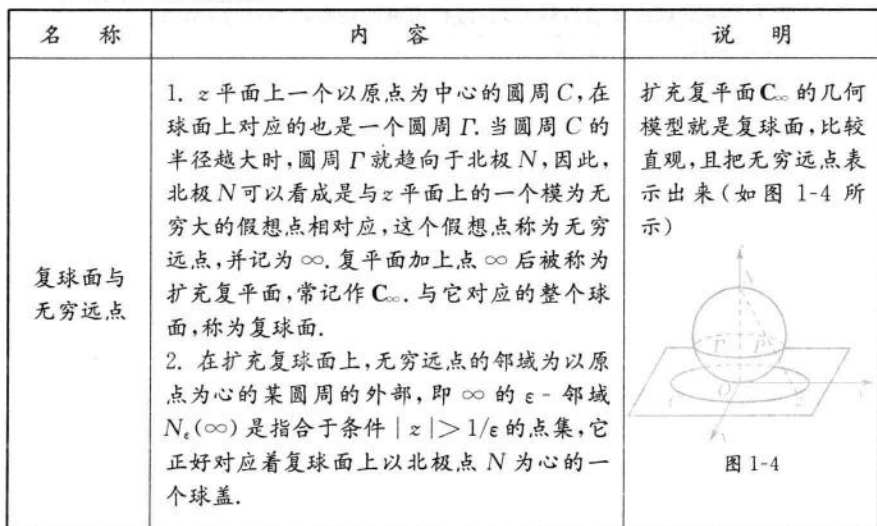 名 称
内 容
说 明
复球面与
无穷远点
1. z 平面上一个以原点为中心的圆周 C,在
球面上对应的也是一个圆周 Γ. 当圆周 C 的
半径越大时,圆周 Γ 就趋向于北极 N,因此,
北极 N 可以看成是与 z 平面上的一个模为无
穷大的假想点相对应,这个假想点称为无穷
远点,并记为 ∞. 复平面加上点 ∞ 后被称为
扩充复平面,常记作 C∞. 与它对应的整个球
面,称为复球面.
2. 在扩充复球面上,无穷远点的邻域为以原
点为心的某圆周的外部,即 ∞ 的 ε - 邻域
Nε(∞) 是指合于条件 | z |> 1/ε 的点集,它
正好对应着复球面上以北极点 N 为心的一
个球盖.
扩充复平面 C∞ 的几何
模型就是复球面,比较
直观,且把无穷远点表
示出来(如图 1-4 所
示)
N
Γ
P
O
C
z
图 1-4